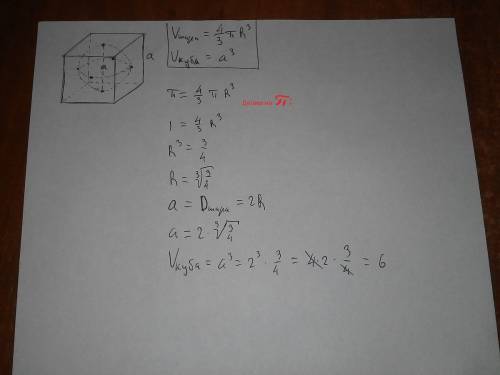 a
a
Vшара = 4/3 π R³
Vкуба = a³
π = 4/3 π R³
Делим на π:
1 = 4/3 R³
R³ = 3/4
R = ∛(3/4)
a = Dшара = 2R
a = 2 · ∛(3/4)
Vкуба = a³ = 2³ · 3/4 = 4̶ 2 · 3/4̶ = 6